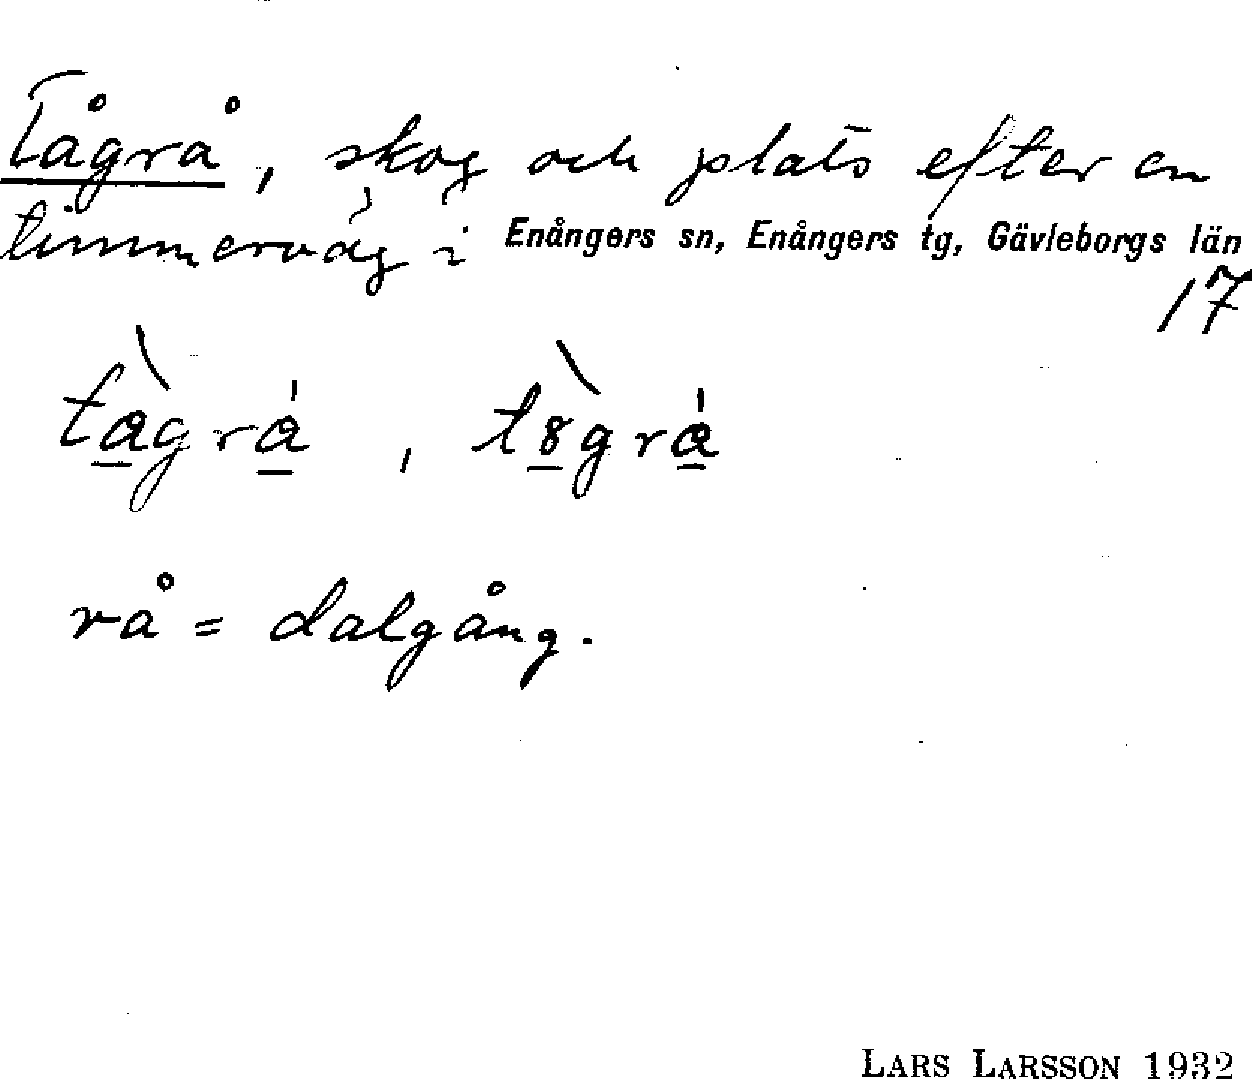 Tågrå, skog och plats efter en
timmerväg i Enångers sn, Enångers tg, Gävleborgs län
17
tàgrá, t8̀grá
rå = dalgång.
LARS LARSSON 1932